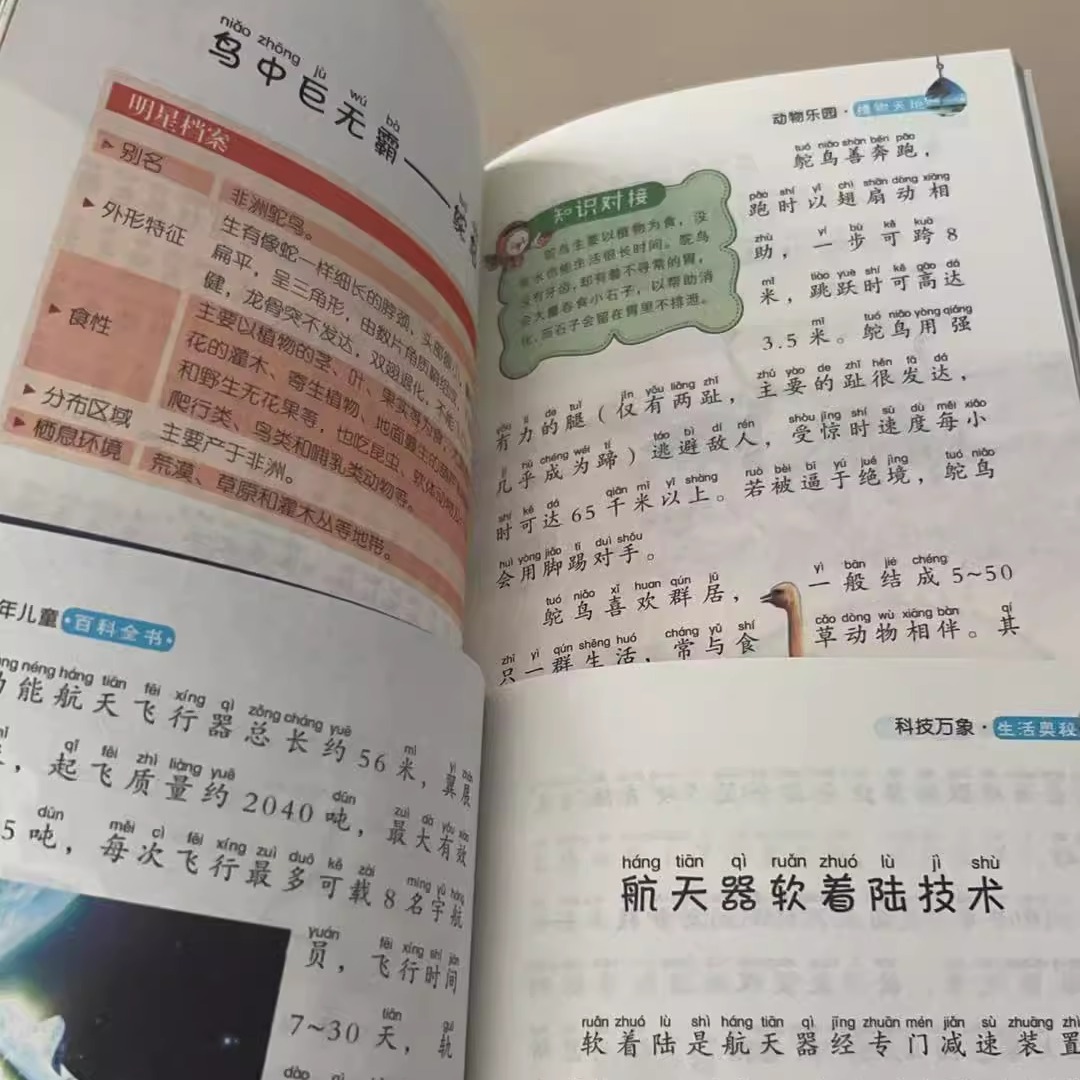 niǎo zhōng jù wú bà
鸟中巨无霸——鸵
明星档案
别名
非洲鸵鸟。
外形特征
生有像蛇一样细长的脖颈,头部
扁平,呈三角形,由数片角质
健,龙骨突不发达,双翅退化,不能
食性
主要以植物的茎、叶、果实等为食
花的灌木、寄生植物、地面蔓生的
和野生无花果等,也吃昆虫、软体动物
爬行类、鸟类和哺乳类动物等。
分布区域
主要产于非洲。
栖息环境
荒漠、草原和灌木丛等地带。
动物乐园·植物天地
知识对接
鸵鸟主要以植物为食,没
水也能生活很长时间。鸵鸟
没有牙齿,却有着不寻常的胃,
会大量吞食小石子,以帮助消
化,而石子会留在胃里不排泄。
tuó niǎo shàn bēn pǎo
鸵鸟善奔跑,
pǎo shí yǐ chì shān dòng xiāng
跑时以翅扇动相
zhù yí bù kě kuà
助,一步可跨8
mǐ tiào yuè shí kě gāo dá
米,跳跃时可高达
mǐ tuó niǎo yòng qiáng
3.5米。鸵鸟用强
yǒu lì de tuǐ jǐn yǒu liǎng zhǐ zhǔ yào de zhǐ hěn fā dá
有力的腿(仅有两趾,主要的趾很发达,
jī hū chéng wéi tí táo bì dí rén shòu jīng shí sù dù měi xiǎo
几乎成为蹄)逃避敌人,受惊时速度每小
shí kě dá qiān mǐ yǐ shàng ruò bèi bī yú jué jìng tuó niǎo
时可达65千米以上。若被逼于绝境,鸵鸟
huì yòng jiǎo tī duì shǒu
会用脚踢对手。
tuó niǎo xǐ huan qún jū yì bān jié chéng
鸵鸟喜欢群居,一般结成5~50
zhī yì qún shēng huó cháng yǔ shí cǎo dòng wù xiāng bàn qí
只一群生活,常与食草动物相伴。其
年儿童 百科全书
néng háng tiān fēi xíng qì zǒng cháng yuē mǐ yì zhǎn
功能航天飞行器总长约56米,翼展
qǐ fēi zhì liàng yuē dūn zuì dà yǒu xiào
,起飞质量约2040吨,最大有效
dūn měi cì fēi xíng zuì duō kě zài míng yǔ háng
5吨,每次飞行最多可载8名宇航
yuán fēi xíng shí jiān
员,飞行时间
tiān guǐ
7~30天,轨
dào qì
科技万象·生活奥秘
háng tiān qì ruǎn zhuó lù jì shù
航天器软着陆技术
ruǎn zhuó lù shì háng tiān qì jīng zhuān mén jiǎn sù zhuāng zhì
软着陆是航天器经专门减速装置